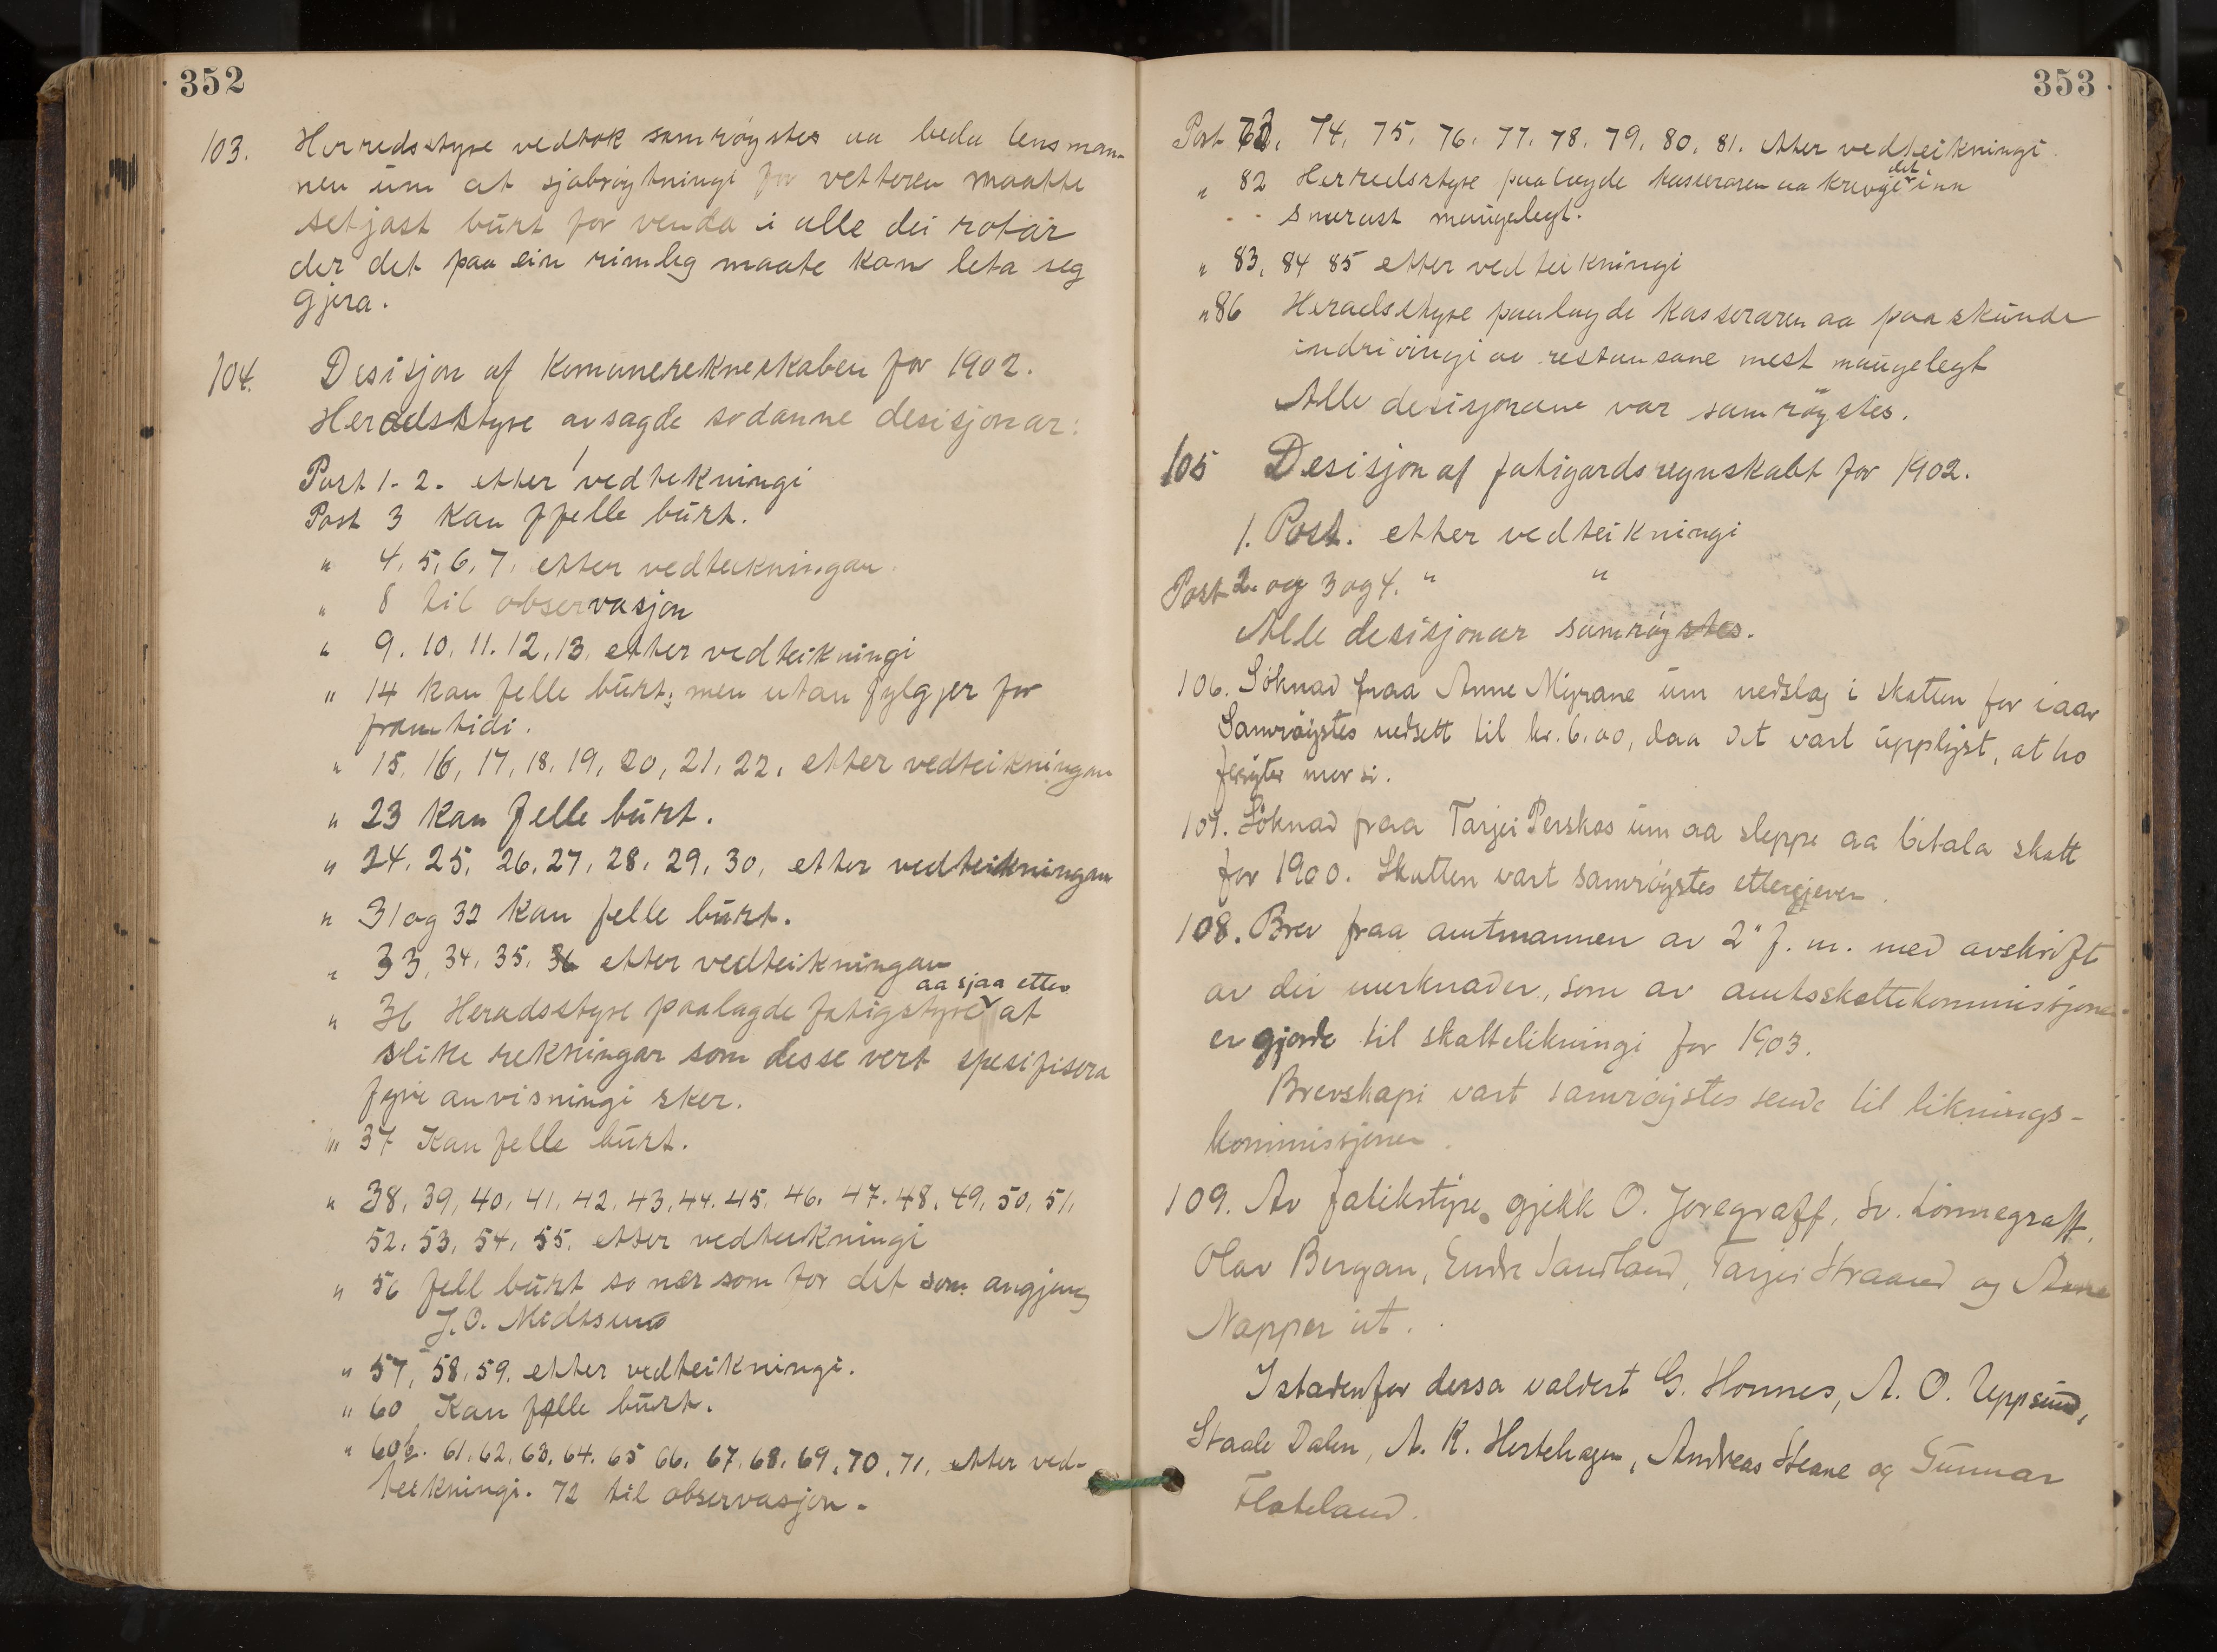 352
103. Herredsstyre vedtok samrøystes aa beda lensman-
nen um at sjabrøytningi for vetteren maatte
setjast burt for venda i alle dei rotar
der det paa ein rimleg maate kan leta seg
gjera.
104. Desisjon af Komunerekneskaben for 1902.
Heradsstyre avsagde sodanne desisjonar:
Post 1. 2. etter vedtekningi
Post 3 kan felle burt.
" 4, 5, 6, 7, etter vedteikningan.
" 8 til observasjon
" 9. 10. 11. 12, 13, etter vedteikningi
" 14 kan felle burt; men utan fylgjer for
framtidi.
" 15, 16, 17, 18, 19, 20, 21, 22, etter vedteikningan
" 23 kan felle burt.
" 24, 25, 26, 27, 28, 29, 30, etter vedteikningan
" 31 og 32 kan felle burt.
" 33, 34, 35, 36 etter vedteikningan
aa sjaa etter
" 36 Heradsstyre paalagde fatigstyre at
slike rekningar som desse vert spesifisera
fyre anvisningi sker.
" 37 Kan felle burt.
" 38, 39, 40, 41, 42, 43, 44. 45, 46. 47. 48, 49, 50, 51,
52, 53, 54, 55, etter vedteikningi
" 56 fell burt so nær som for det som angjeng
J. O. Midtsund
" 57, 58, 59. etter vedteikningi.
" 60 Kan felle burt.
" 60b. 61, 62, 63, 64. 65 66. 67. 68. 69, 70, 71, etter ved-
teikningi. 72 til observasjon.
353
Post 73, 74, 75, 76, 77, 78, 79, 80, 81. etter vedteikningi.
det
" 82 Herredsstyre paalagde kasseraren aa krevje inn
snurast maugelegt.
" 83, 84 85 etter vedteikningi
" 86 Heradsstyre paalagde Kasseraren aa paaskunde
indrivingi av restansane mest maugelegt
Alle desisjonene var samrøystes.
105 Desisjon af fatigardsregnskabt for 1902.
1. Post. etter vedteikningi
Post 2. og 3 og 4. " "
Alle desisjonar samrøystes.
106. Søknad fraa Anne Myrane um nedslag i skatten for iaar
Samrøystes nedsett til kr. 6.00, daa det vart upplyst, at ho
mor si.
107. Søknad fraa Tarjei Perskas um aa sleppe aa betala skatt
for 1900. Skatten vart samrøystes ettergjeven.
108. Brev fraa amtmannen av 2" f. m. med avskrift
av dei merknader, som av amtsskattekommissjonen
er gjorde til skattelikningi for 1903.
Brevskapi vart samrøystes sende til liknings-
kommissjonen.
109. Av fatikstyre gjekk O. Joregraff, Sv. Lonnegraff,
Olav Bergan, Endre Sandland, Tarjei Straand og Anne
Napper ut.
Istadenfor dessa valdest G. Homnes, A. O. Uppsund,
Staale Dalen, A. K. Hertehagen, Andreas Steane og Gunnar
Flateland.